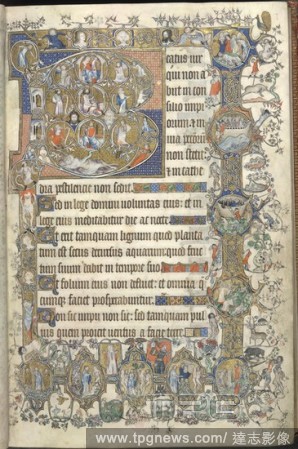 Beatus uir
qui non a
bit in con
silio impi
orum & in
uia
non stetit
& in cathe
dra pestilencie non sedit
Sed in lege domini uoluntas eius: et in
lege eius meditabitur die ac nocte
Et erit tamquam lignum quod planta
tum est secus decursus aquarum: quod fruc
tum suum dabit in tempore suo
Et folium eius non defluet: et omnia q
cumque faciet prosperabuntur
Non sic impii non sic: sed tamquam pul
uis quem proicit uentus a facie terre
www.tpgnews.com/達志影像